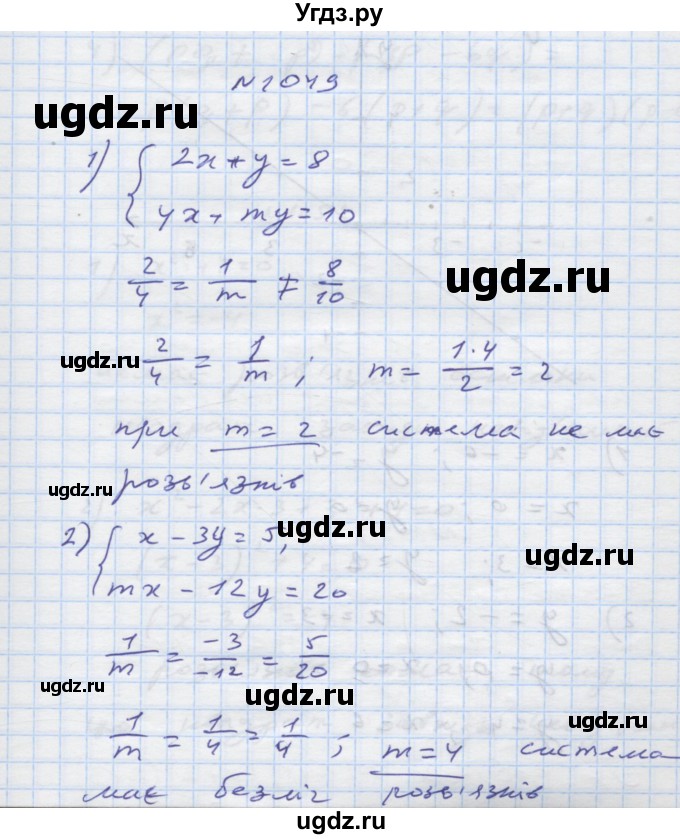 Угдз.ру
N1049
ugdz.ru
1) { 2x + y = 8
4x + my = 10
2/4 = 1/m ≠ 8/10
ugdz.ru
ugdz.ru
2/4 = 1/m ; m = 1·4/2 = 2
ugdz.ru
при m = 2 система не має
ugdz.ru
розв'язків
ugdz.ru
2) { x - 3y = 5,
mx - 12y = 20
1/m = -3/-12 = 5/20
ugdz.ru
ugdz.ru
ugdz.ru
1/m = 1/4 = 1/4 ; m = 4 система
має безліч розв'язків
©Угдз.ру